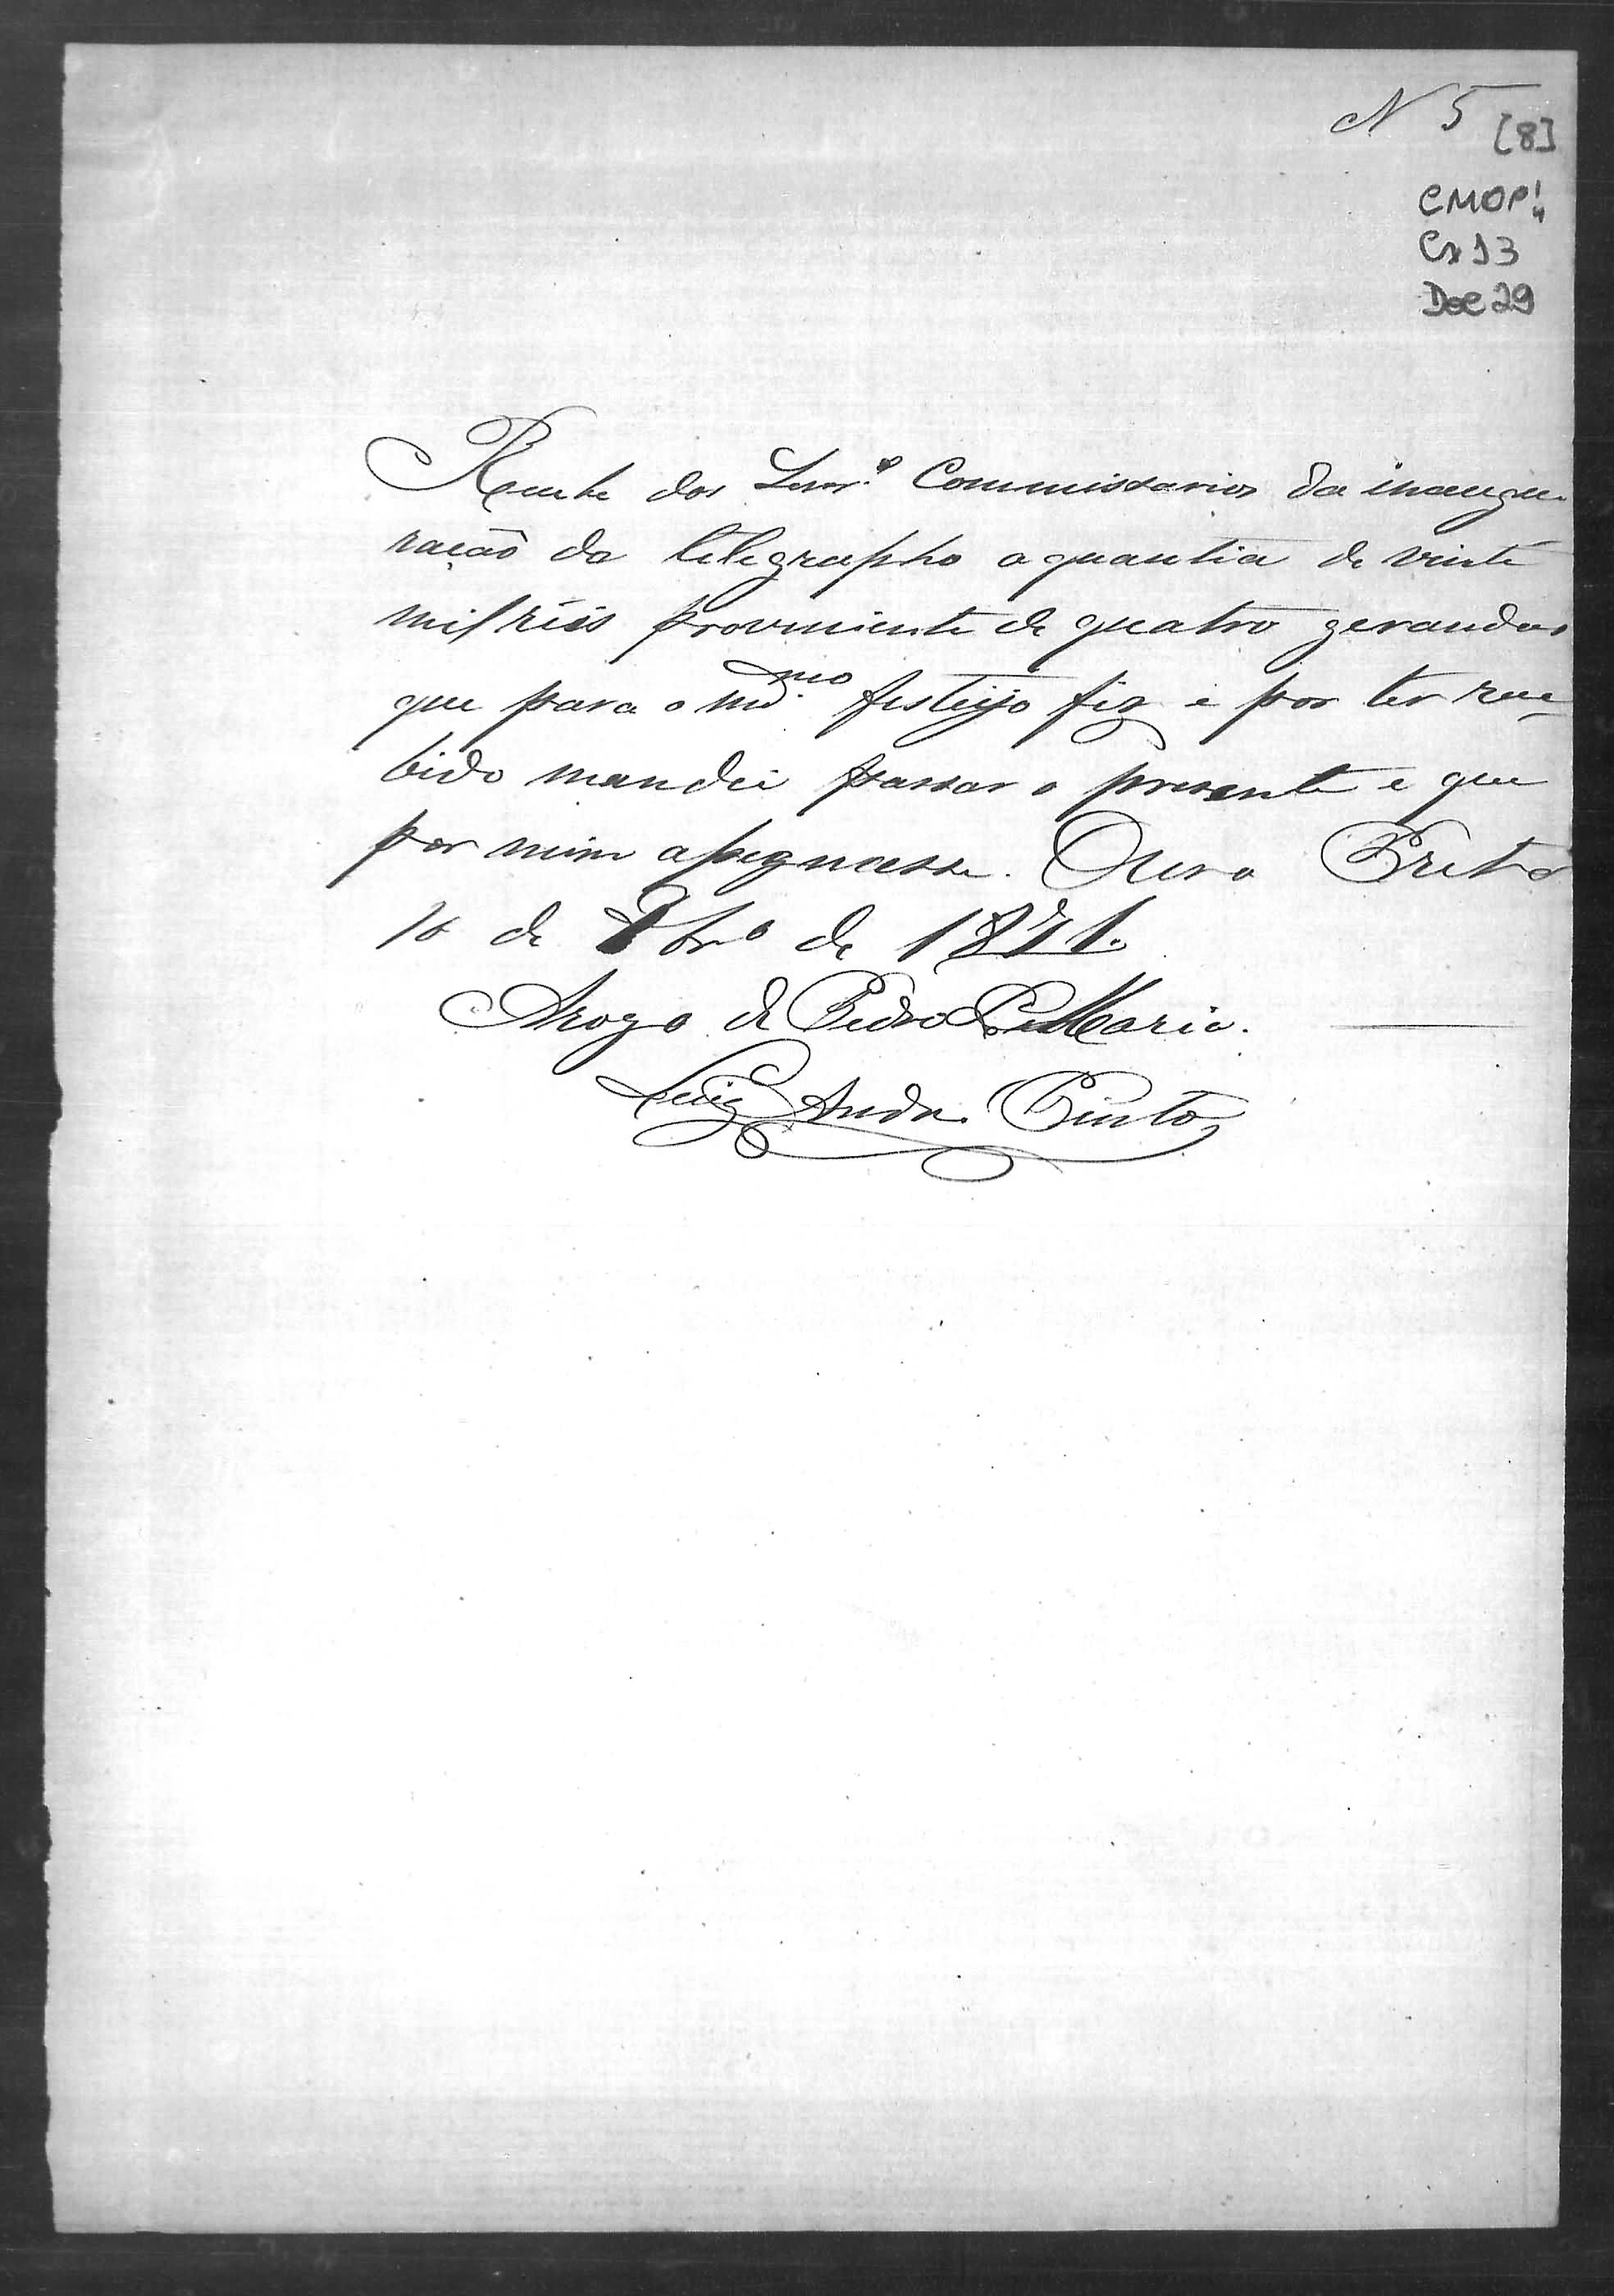 N 5
[8]
CMOP
Cx 13
Doc 29
Recebe dos Senr.es Commissarios da inaugu-
ração do telegrapho a quantia de vinte
mil réis proveniente de quatro gerandas
que para o md.mo festeijo fiz e por ter rece-
bido mandei passar o presente e que
por mim assignasse. Ouro Preto
16 de 8br.o de 1871.
Arogo de Pedro Maria.
Luiz Andre Pinto